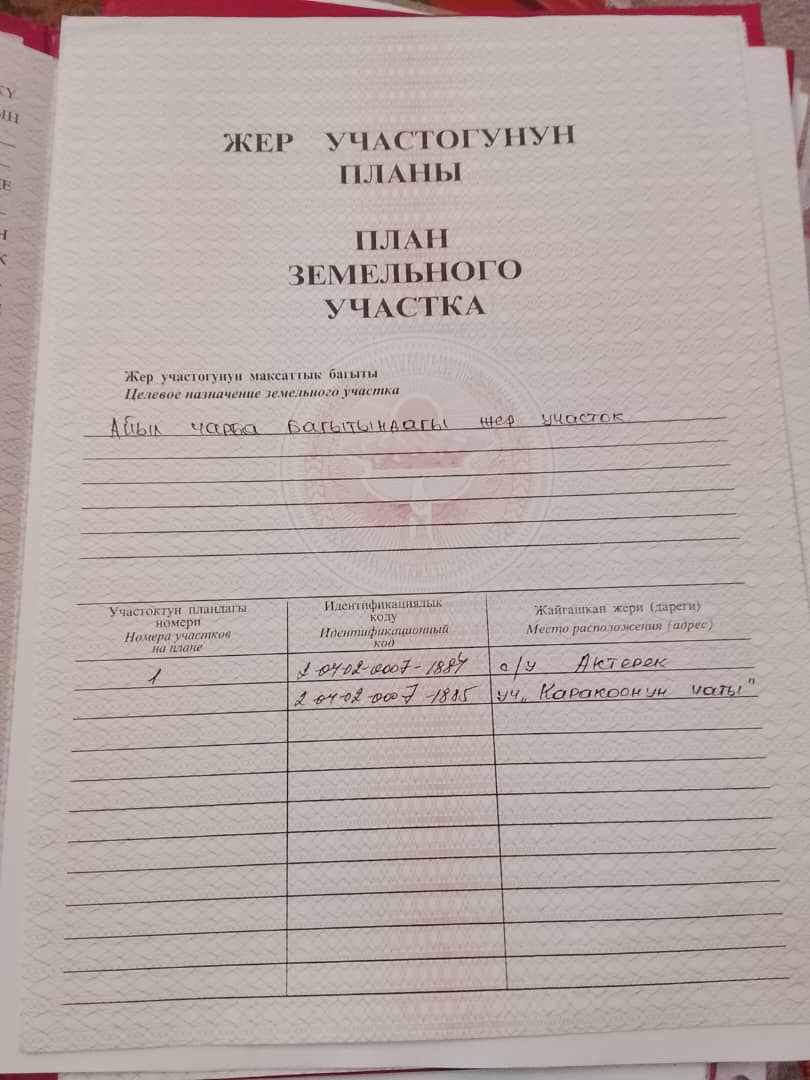 ЖЕР УЧАСТОГУНУН
ПЛАНЫ
ПЛАН
ЗЕМЕЛЬНОГО
УЧАСТКА
Жер участогунун максаттык багыты
Целевое назначение земельного участка
Айыл чарба багытындагы жер участок.
Участоктун пландагы номери
Номера участков на плане
Идентификациялык коду
Идентификационный код
Жайгашкан жери (дареги)
Место расположения (адрес)
1
2-04-02-0007-1884
а/у Актерек
2-04-02-0007-1885
уч. "Каракоонун чаты"